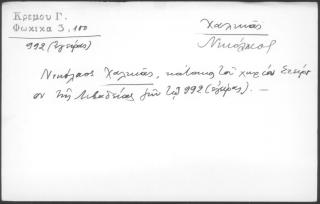 Κρεμου Γ.
Φωκικα 3, 180
992 (έγγρας)
Χαλκιᾶς
Νικόλαος
Νικόλαος Χαλκιᾶς, κάτοικος τοῦ χωρίου Στείρι
ου τῆς Λεβαδείας ἐν τῷ 992 (έγγρας). —